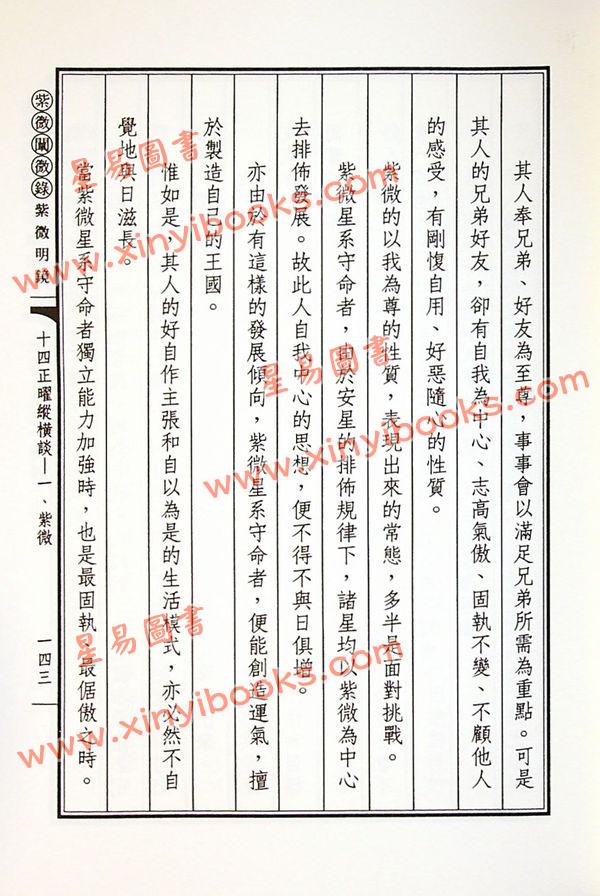 其人奉兄弟、好友為至尊，事事會以滿足兄弟所需為重點。可是
其人的兄弟好友，卻有自我為中心、志高氣傲、固執不變、不顧他人
的感受，有剛愎自用、好惡隨心的性質。
紫微的以我為尊的性質，表現出來的常態，多半是面對挑戰。
紫微星系守命者，由於安星的排佈規律下，諸星均以紫微為中心
去排佈發展。故此人自我中心的思想，便不得不與日俱增。
亦由於有這樣的發展傾向，紫微星系守命者，便能創造運氣，擅
於製造自己的王國。
惟如是，其人的好自作主張和自以為是的生活模式，亦必然不自
覺地與日滋長。
當紫微星系守命者獨立能力加強時，也是最固執、最倨傲之時。
紫微闡微錄 紫微明鏡
十四正曜縱橫談－一、紫微
一四三
星易圖書
www.xinyibooks.com
星易圖書
www.xinyibooks.com
星易圖書
www.xinyibooks.com